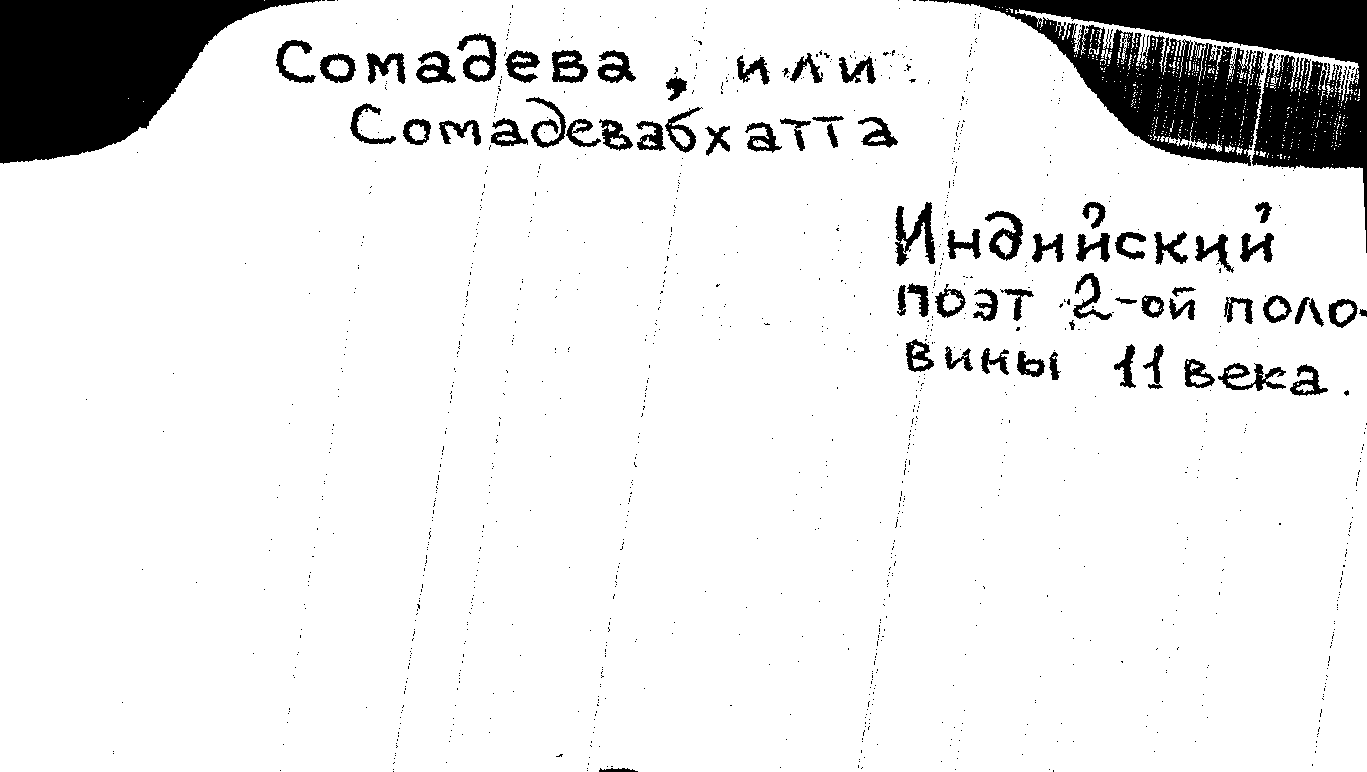 Сомадева, или
Сомадевабхатта
Индийский
поэт 2-ой поло-
вины 11 века.